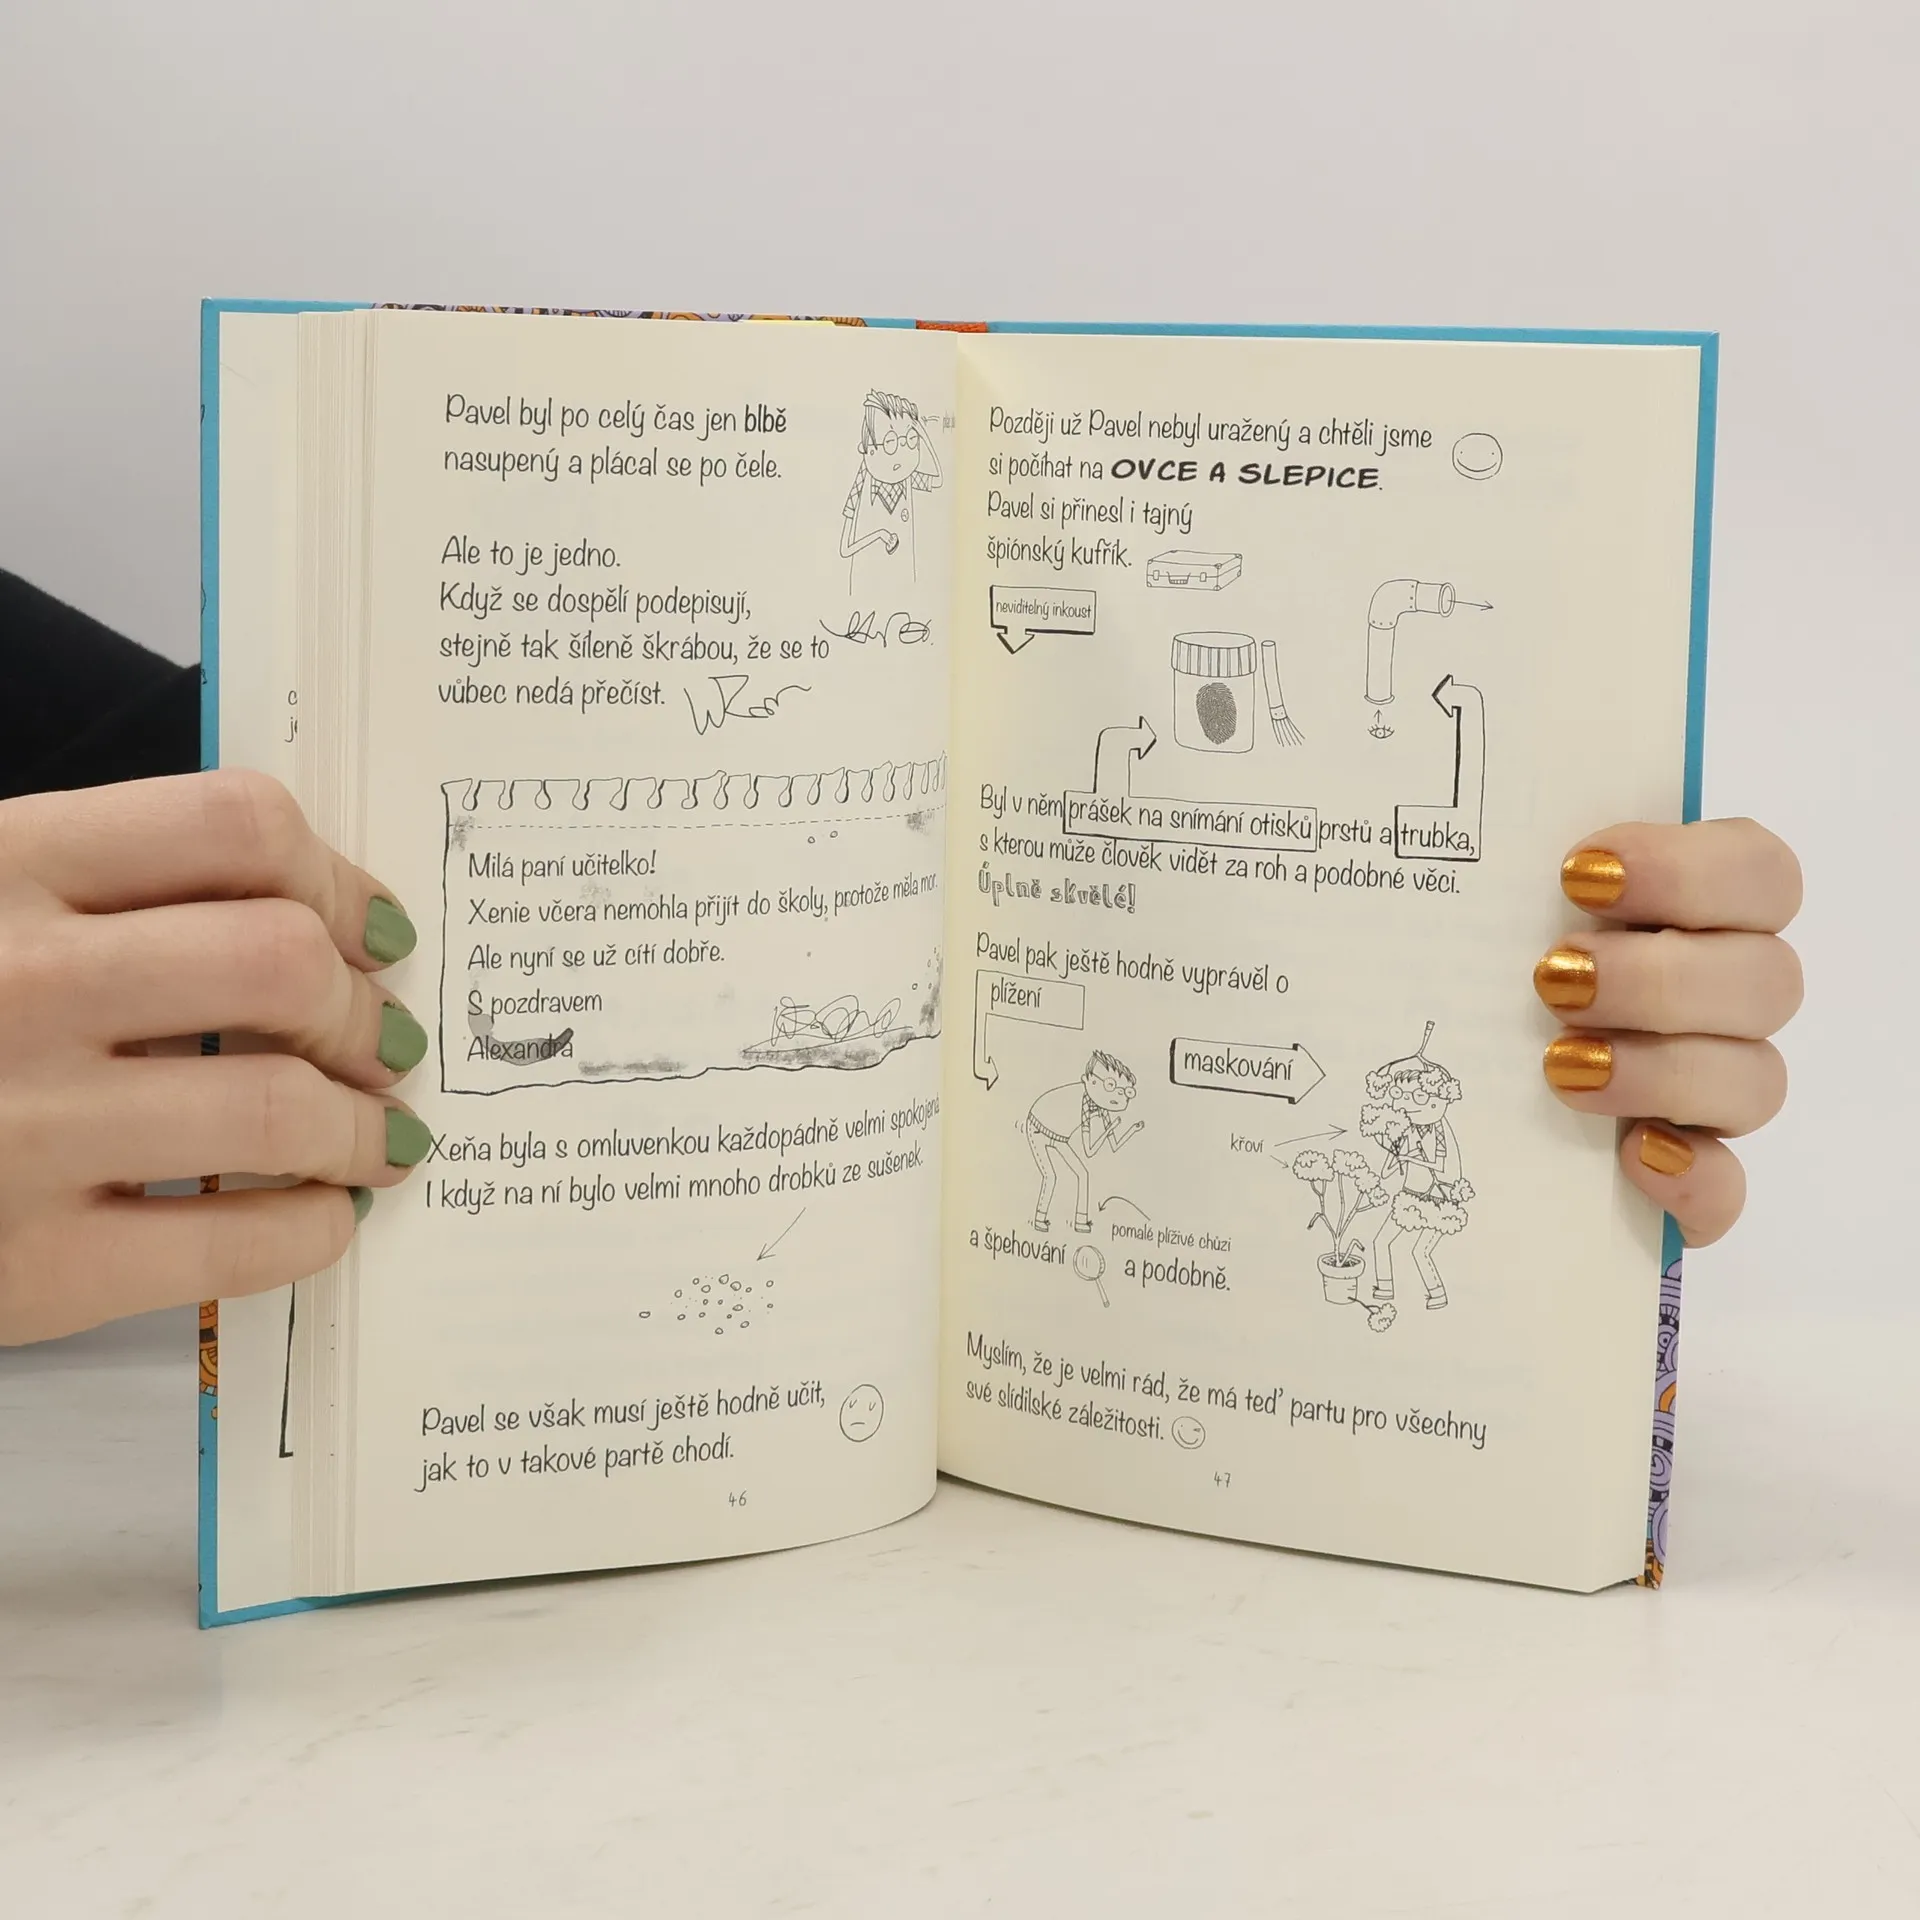 Pavel byl po celý čas jen blbě
nasupený a plácal se po čele.
Ale to je jedno.
Když se dospělí podepisují,
stejně tak šíleně škrábou, že se to
vůbec nedá přečíst.
Milá paní učitelko!
Xenie včera nemohla přijít do školy, protože měla mor.
Ale nyní se už cítí dobře.
S pozdravem
Alexandra
Xeňa byla s omluvenkou každopádně velmi spokojená
I když na ní bylo velmi mnoho drobků ze sušenek.
Pavel se však musí ještě hodně učit,
jak to v takové partě chodí.
46
Později už Pavel nebyl uražený a chtěli jsme
si počíhat na OVCE A SLEPICE.
Pavel si přinesl i tajný
špiónský kufřík.
neviditelný inkoust
Byl v něm prášek na snímání otisků prstů a trubka,
s kterou může člověk vidět za roh a podobné věci.
Úplně skvělé!
Pavel pak ještě hodně vyprávěl o
plížení
maskování
křoví
pomalé plíživé chůzi
a špehování a podobně.
Myslím, že je velmi rád, že má teď partu pro všechny
své slídilské záležitosti.
47